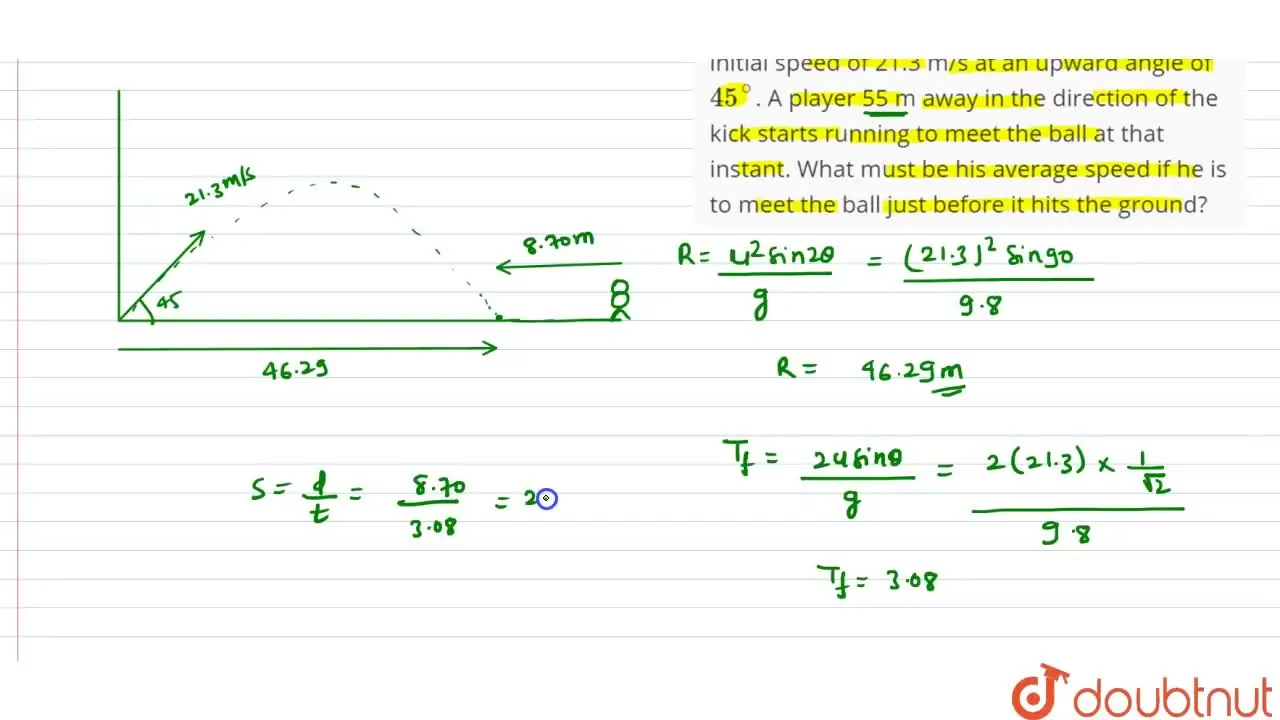 initial speed of 21.3 m/s at an upward angle of
45°. A player 55 m away in the direction of the
kick starts running to meet the ball at that
instant. What must be his average speed if he is
to meet the ball just before it hits the ground?
21.3 m/s
8.70m
45
46.29
R = u² sin2θ / g = (21.3)² sin90 / 9.8
R = 46.29 m
Tf = 2u sinθ / g = 2(21.3) × 1/√2 / 9.8
S = d/t = 8.70 / 3.08 = 2
Tf = 3.08
doubtnut